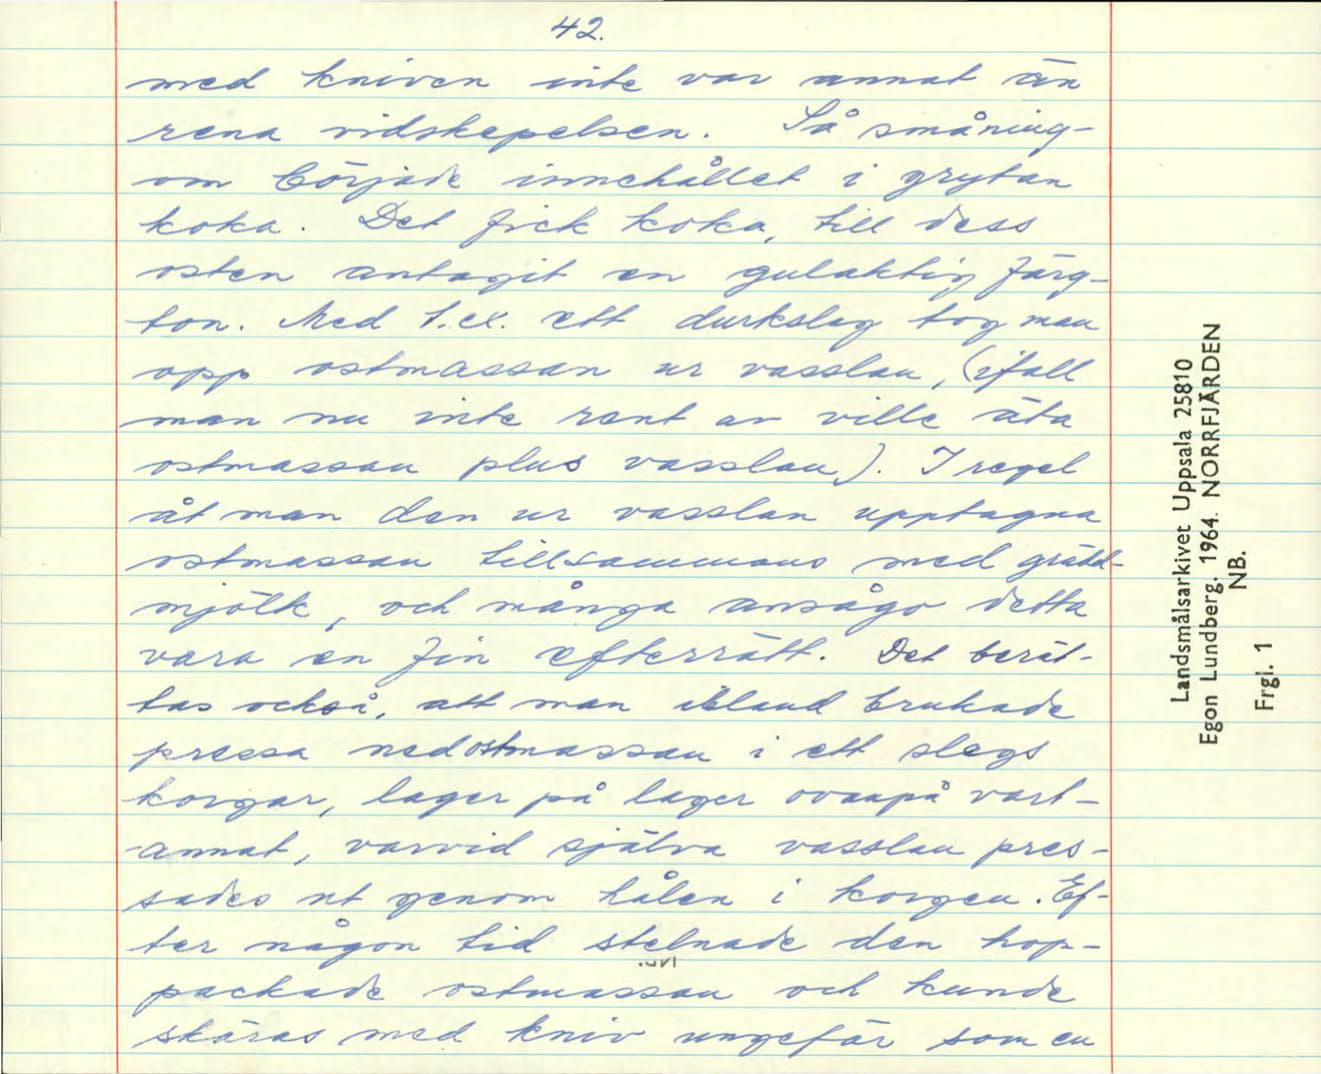 42.
med kniven inte var annat än
rena vidskepelsen. Så småning-
om började innehållet i grytan
koka. Det fick koka, till dess
osten antagit en gulaktig färg-
ton. Med t.ex. ett durkslag tog man
opp ostmassan ur vasslan, (ifall
man nu inte rent av ville äta
ostmassan plus vasslan). I regel
åt man den ur vasslan upptagna
ostmassan tillsammans med grädd-
mjölk, och många ansågo detta
vara en fin efterrätt. Det berät-
tas också, att man ibland brukade
pressa ned ostmassan i ett slags
korgar, lager på lager ovanpå vart-
annat, varvid själva vasslan pres-
sades ut genom hålen i korgen. Ef-
ter någon tid stelnade den hop-
packade ostmassan och kunde
skäras med kniv ungefär som en
Landsmålsarkivet Uppsala 25810
Egon Lundberg. 1964. NORRFJÄRDEN
NB.
Frgl. 1